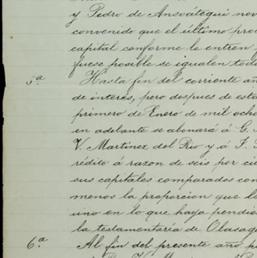 y Pedro de Ansoátegui nov
convenido que el último pro
capital conforme lo entren
fuese posible se igualen toda
5ª Hasta fin del corriente añ
de interés, pero despues de esta
primero de Enero de mil ocho
en adelante se abonará á G.
V. Martinez del Rio y á F.
rédito á razon de seis por cie
sus capitales comparados con
menos la proporcion que l
uno en lo que haya pendi
la testamentaria de Olasag
6ª Al fin del presente año p